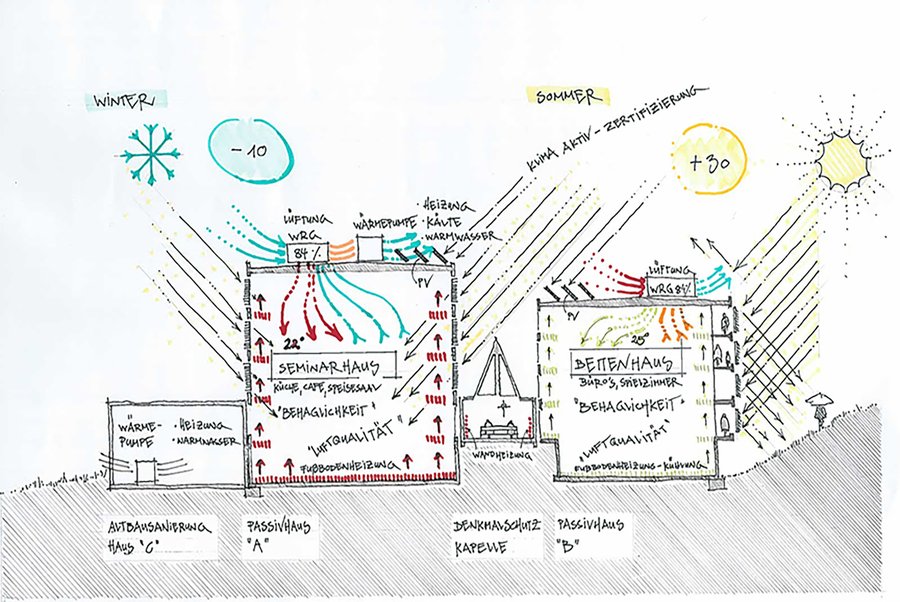 WINTER
SOMMER
KLIMA AKTIV - ZERTIFIZIERUNG
- 10
+ 30
LÜFTUNG
WRG
84 %
WÄRMEPUMPE
· HEIZUNG
· KÄLTE
· WARMWASSER
PV
22°
SEMINARHAUS
KÜCHE, CAFÉ, SPEISESAAL
"BEHAGLICHKEIT"
"LUFTQUALITÄT"
FUẞBODENHEIZUNG
WÄRME-
PUMPE
· HEIZUNG
· WARMWASSER
WANDHEIZUNG
LÜFTUNG
WRG 84%
PV
25°
BETTENHAUS
BÜRO'S, SPIELZIMMER
"BEHAGLICHKEIT"
"LUFTQUALITÄT"
FUẞBODENHEIZUNG - KÜHLUNG
ALTBAUSANIERUNG
HAUS "C"
PASSIVHAUS
"A"
DENKMALSCHUTZ
KAPELLE
PASSIVHAUS
"B"